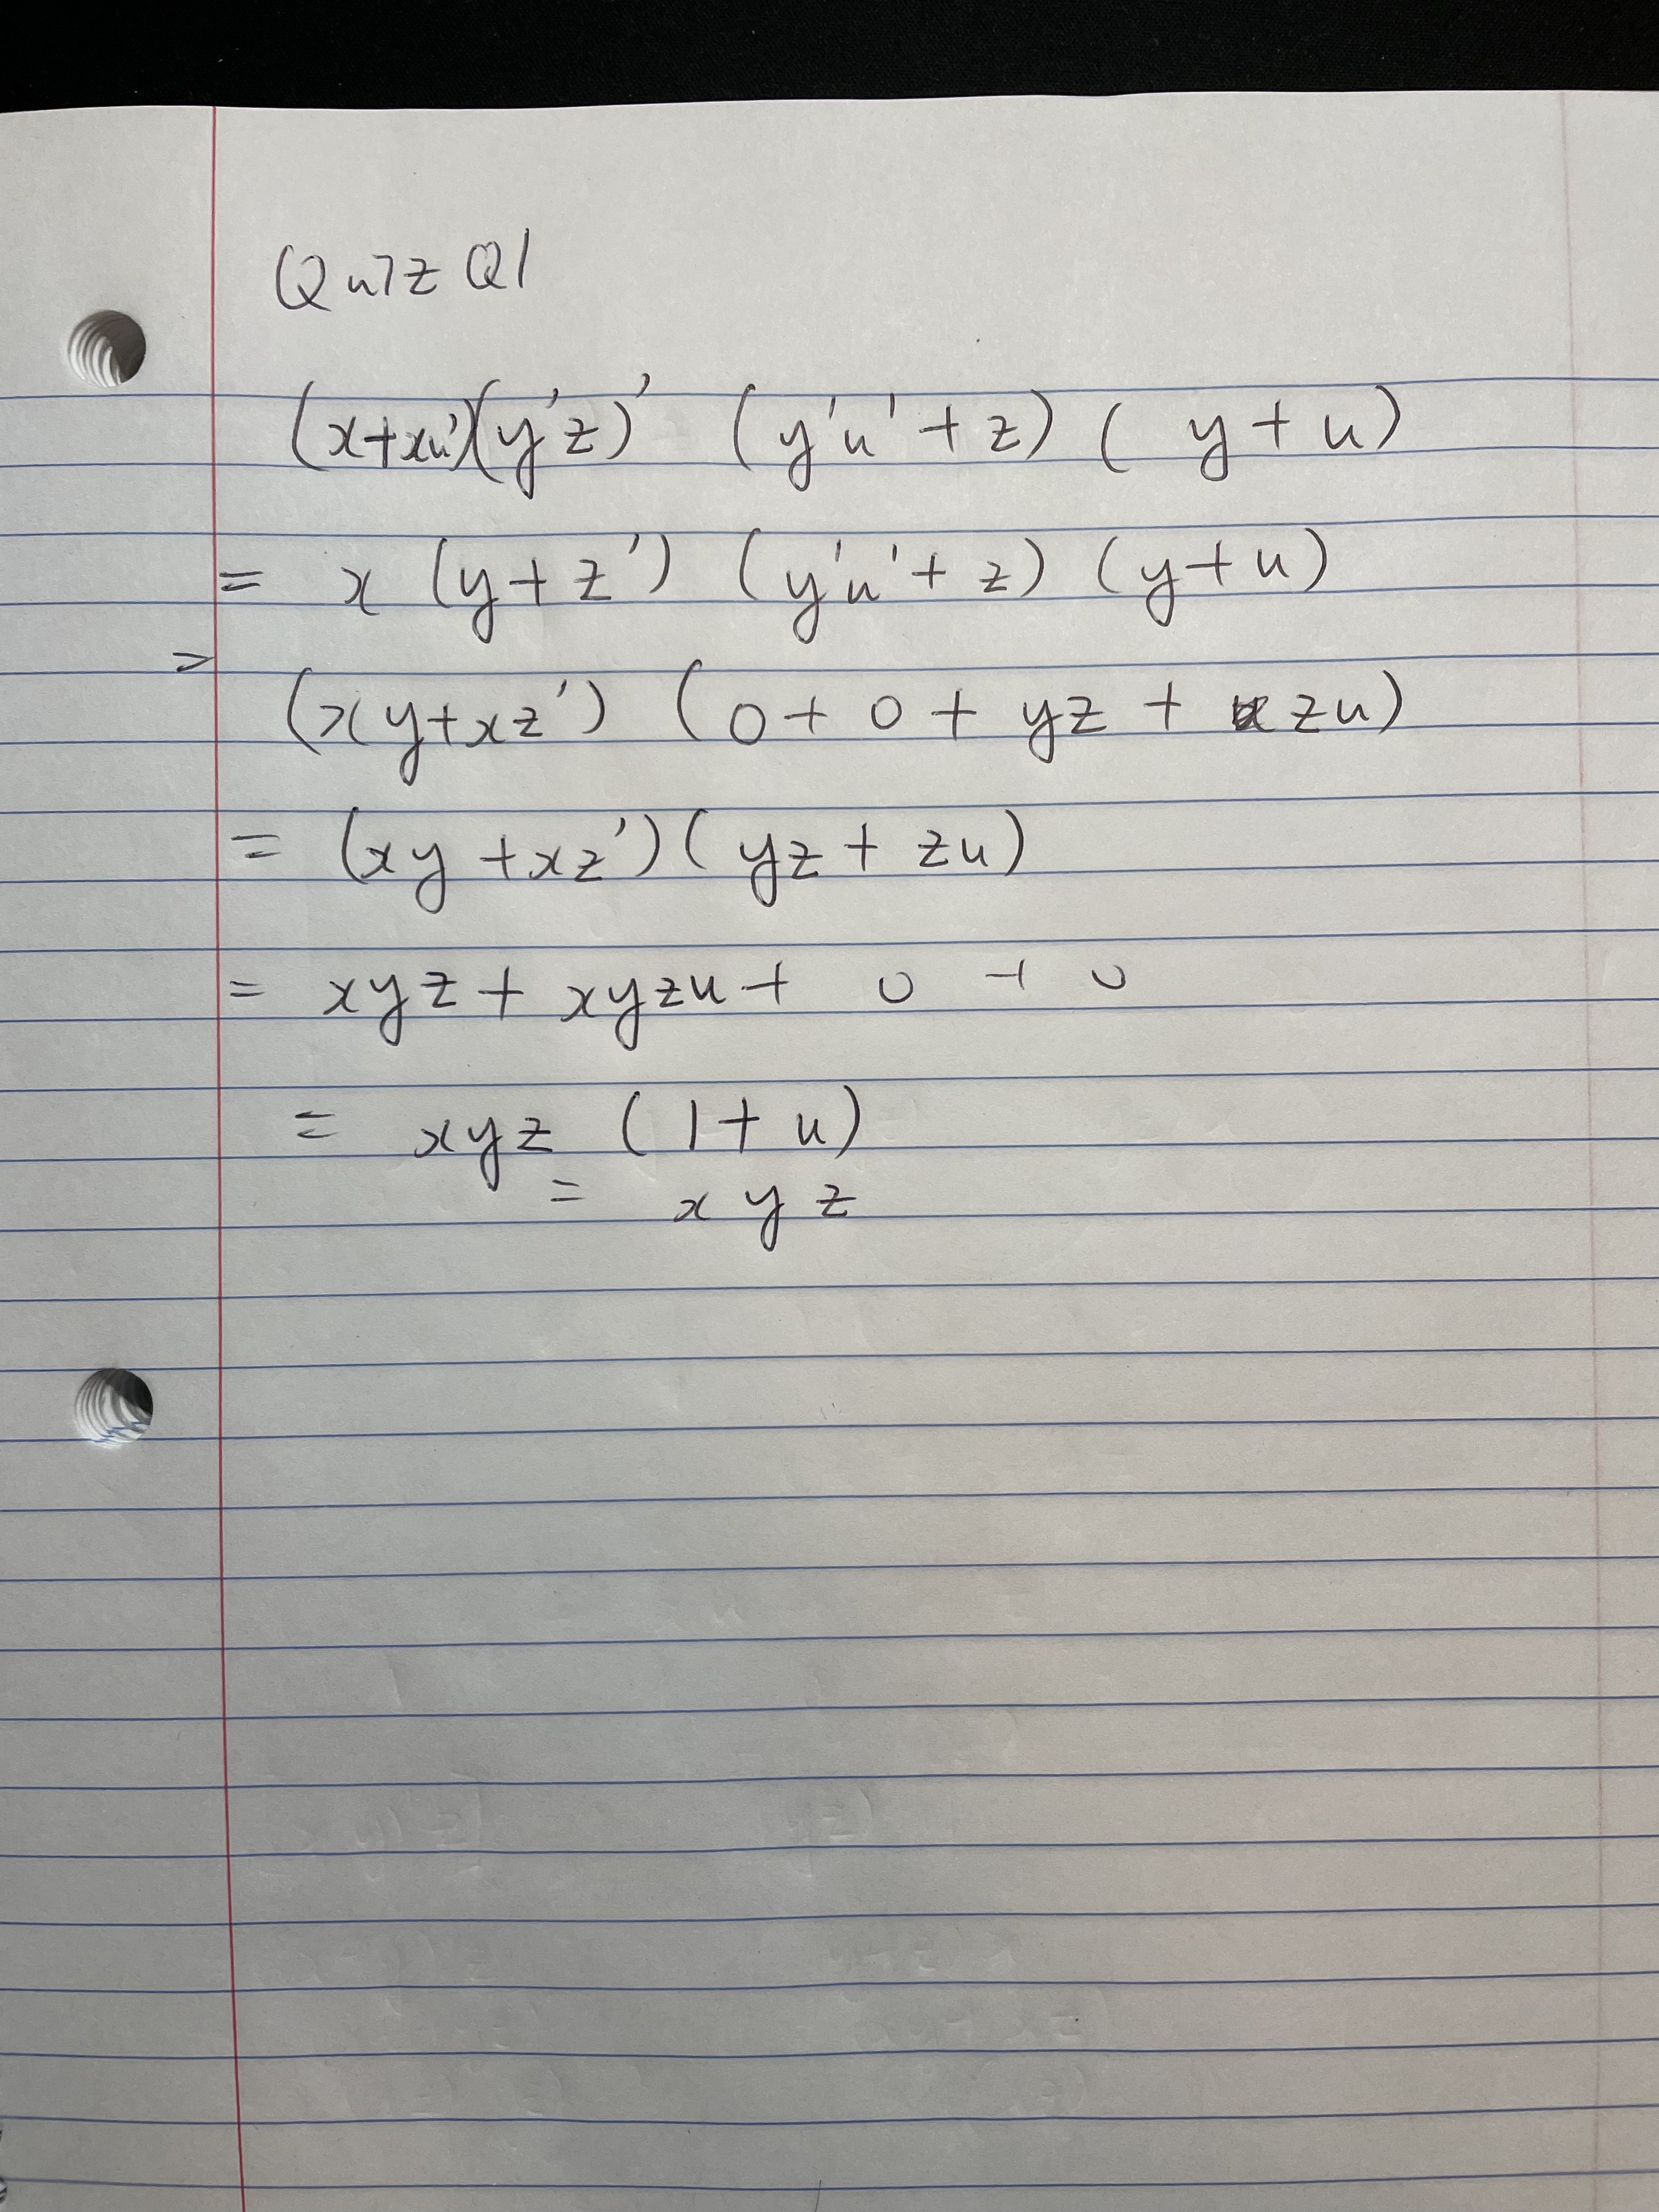 Quiz Q1
(x+xu')(y'z)' (y'u'+z) ( y+u)
= x (y+z') (y'u'+z) (y+u)
=
(xy+xz') (0+0+yz+ zu)
= (xy+xz')(yz+zu)
= xyz+xyzu+ 0 + 0
= xyz (1+u)
= xyz